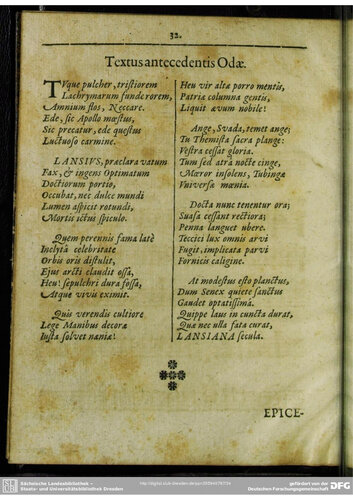 32.
Textus antecedentis Odæ.
TVque pulcher, tristiorem
Lachrymarum funde rorem,
Amnium flos, Neccare.
Ede, sic Apollo mœstus,
Sic precatur, ede questus
Luctuoso carmine.
LANSIVS, præclara vatum
Fax, & ingens Optimatum
Doctiorum portio,
Occubat, nec dulce mundi
Lumen aspicit rotundi,
Mortis ictus spiculo.
Quem perennis fama latè
Inclytâ celebritate
Orbis oris distulit,
Ejus arcti claudit ossa,
Heu! sepulchri dura fossa,
Atque vivis eximit.
Quis verendis cultiore
Lege Manibus decoræ
Iusta solvet næniæ!
Heu vir altæ porro mentis,
Patriæ columna gentis,
Liquit ævum nobile!
Ange, Svada, temet ange;
Tu Themista sacra plange:
Vestra cessat gloria.
Tum sed atrâ nocte cinge,
Mœror insolens, Tubingæ
Vniversæ mœnia.
Docta nunc tenentur ora;
Suasa cessant rectiora;
Penna languet ubere.
Teccici lux omnis arvi
Fugit, implicata parvi
Fornicis caligine.
At modestus esto planctus,
Dum Senex quiete sanctus
Gaudet optatissimâ.
Quippe laus in cuncta durat,
Quæ nec ulla fata curat,
LANSIANA secula.
EPICE-
Sächsische Landesbibliothek -
Staats- und Universitätsbibliothek Dresden
gefördert von der
Deutschen Forschungsgemeinschaft
DFG